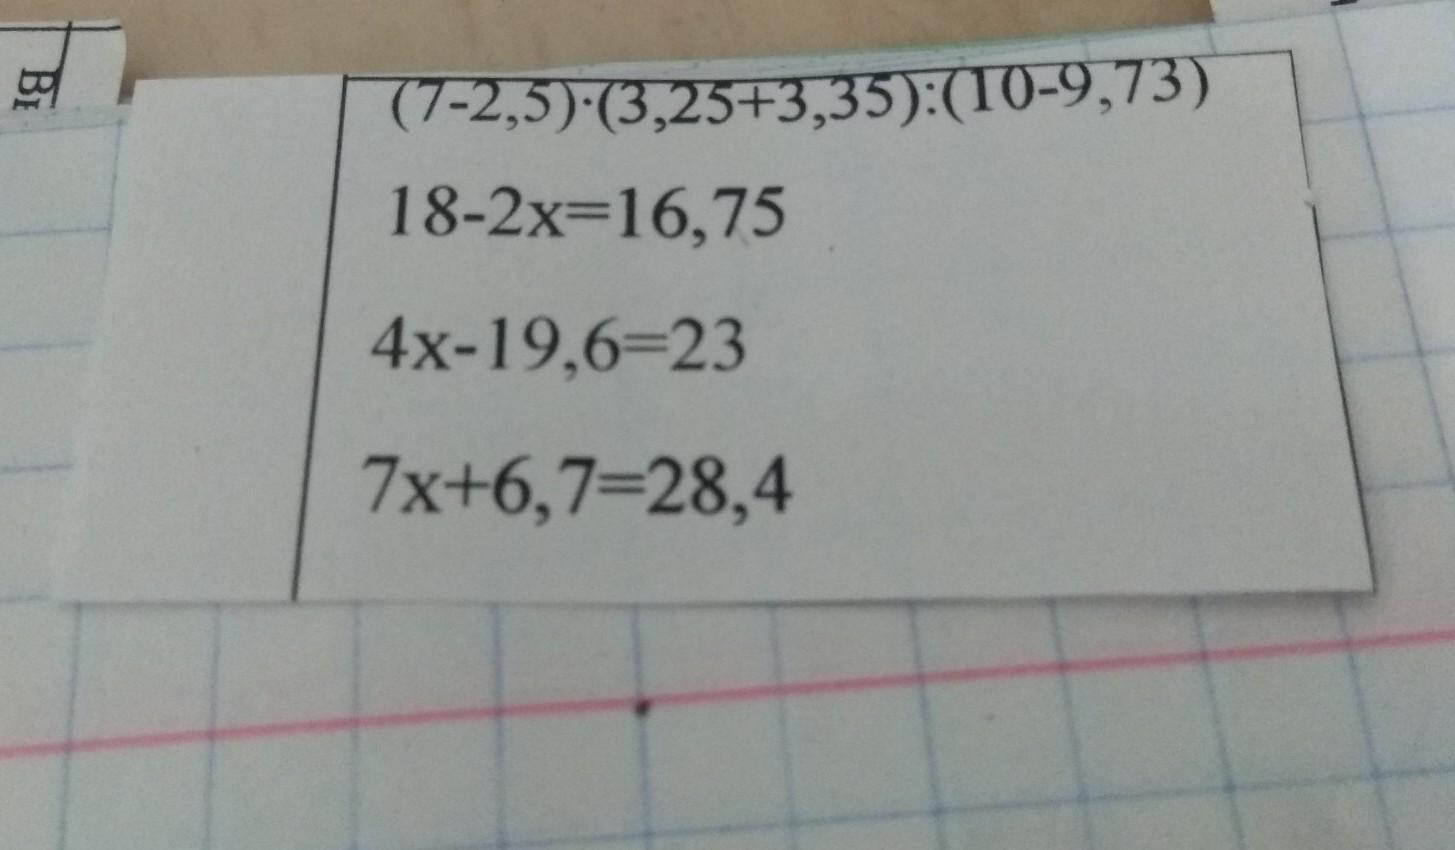 (7-2,5)·(3,25+3,35):(10-9,73)
18-2x=16,75
4x-19,6=23
7x+6,7=28,4